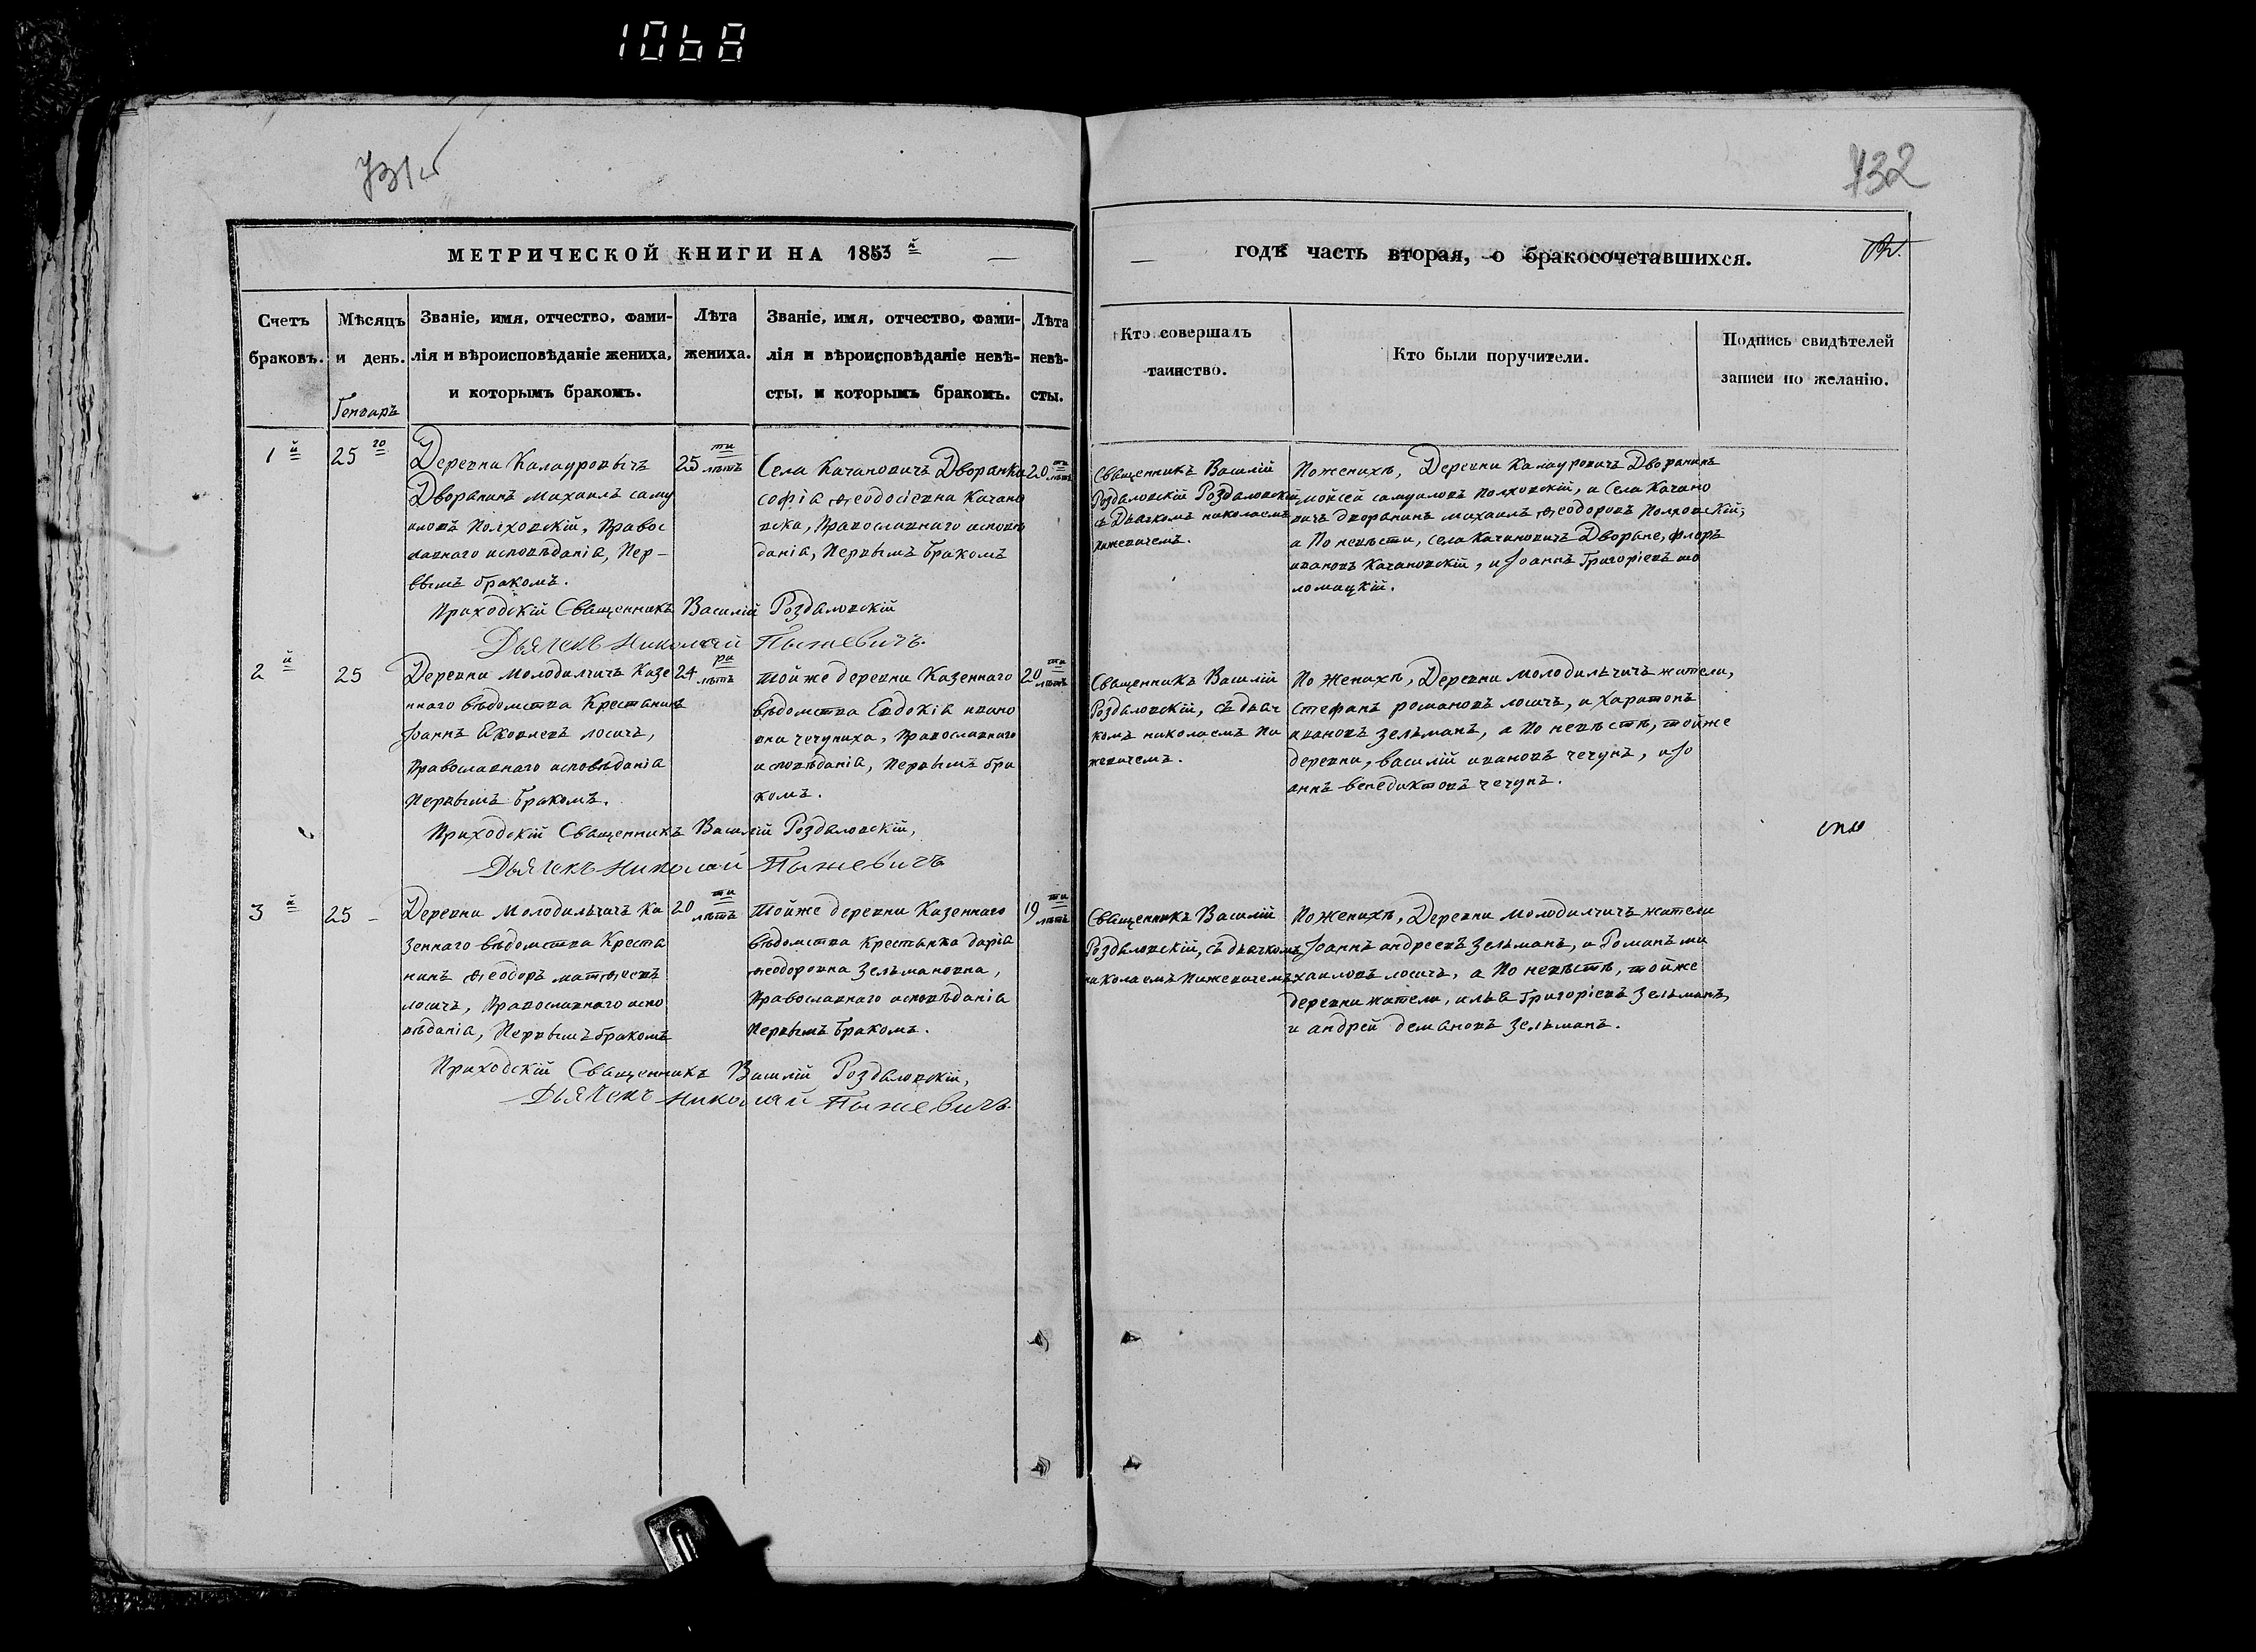 1068
731 об
732
МЕТРИЧЕСКОЙ КНИГИ НА 1853 й
годъ часть вторая, о бракосочетавшихся.
Счетъ браковъ.
Мѣсяцъ и день.
Званіе, имя, отчество, фамилія и вѣроисповѣданіе жениха, и которымъ бракомъ.
Лѣта жениха.
Званіе, имя, отчество, фамилія и вѣроисповѣданіе невѣсты, и которымъ бракомъ.
Лѣта невѣсты.
Кто совершалъ таинство.
Кто были поручители.
Подпись свидѣтелей записи по желанію.
Генваръ
1 й
25 го
Деревни Калауровычъ
Дворанинъ Михаилъ Саму
иловъ Полховскій, Правос
лавнаго исповѣданія, Пер-
вымъ бракомъ.
25 ти лѣтъ
Села Качановичъ Дворанка
Софіа Ѳеодосіевна Качано
вска, Православнаго исповѣ
даніа, Первымъ бракомъ
20 ти лѣтъ
Священникъ Василій
Роздаловскій Роздаловскій,
съ Дьачкомъ николаемъ
Пыжевичемъ.
По женихѣ, Деревни Калауровичъ Дворанинъ
мойсей самуиловъ Полховскій, и Села Качано
вичъ дворанинъ михаилъ Ѳеодоровъ Полховскій;
а По невѣсти, села Качановичъ Дворане, Флоръ
ивановъ Качановскій, и Іоаннъ Григоріевъ то
ломацкій.
Приходскій Священникъ Василій Роздаловскій
Дьячекъ Николай Пыжевичъ.
2 й
25
Деревни Молодилчичъ Казе
ннаго вѣдомства Крестанинъ
Іоаннъ Яковлевъ лосичъ,
Православнаго исповѣданіа
Первымъ бракомъ.
24 ри лѣтъ
той же деревни Казеннаго
вѣдомства Евдокіа ивано
вна чечуниха, Православнаго
исповѣданіа, Первымъ бра
комъ.
20 ти лѣтъ
Священникъ Василій
Роздаловскій, съ дьач
комъ николаемъ Пи
жевичемъ.
По женихѣ, Деревни Молодильчичъ жители,
Стефанъ романовъ лосичъ, и Харитонъ
ивановъ зельманъ, а По невѣстѣ, тойже
деревни, василій ивановъ чечунъ, и Іо
аннъ венедиктовъ чечунъ.
Приходскій Священникъ Василій Роздаловскій,
Дьячекъ Николай Пыжевичъ
3 й
25 -
Деревни Молодильчичъ Ка
зеннаго вѣдомства Креста
нинъ Ѳеодоръ матѳеевъ
лосичъ, Православнаго испо
вѣданіа, Первымъ бракомъ
20 ти лѣтъ
Тойже деревни Казеннаго
вѣдомства Крестьанка даріа
Ѳеодоровна Зельмановна,
Православнаго исповѣданіа
Первымъ бракомъ.
19 ти лѣтъ
Священникъ Василій
Роздаловскій, съ дьачкомъ
николаемъ Пижевичемъ
По женихѣ, Деревни молодилчичъ жители
Іоаннъ андреевъ Зельманъ, и Романъ ми
хаиловъ лосичъ, а По невѣстѣ, тойже
деревни жители, илья Григоріевъ Зельманъ,
и андрей демановъ Зельманъ.
Приходскій Священникъ Василій Роздаловскій,
Дьячекъ Николай Пыжевичъ.